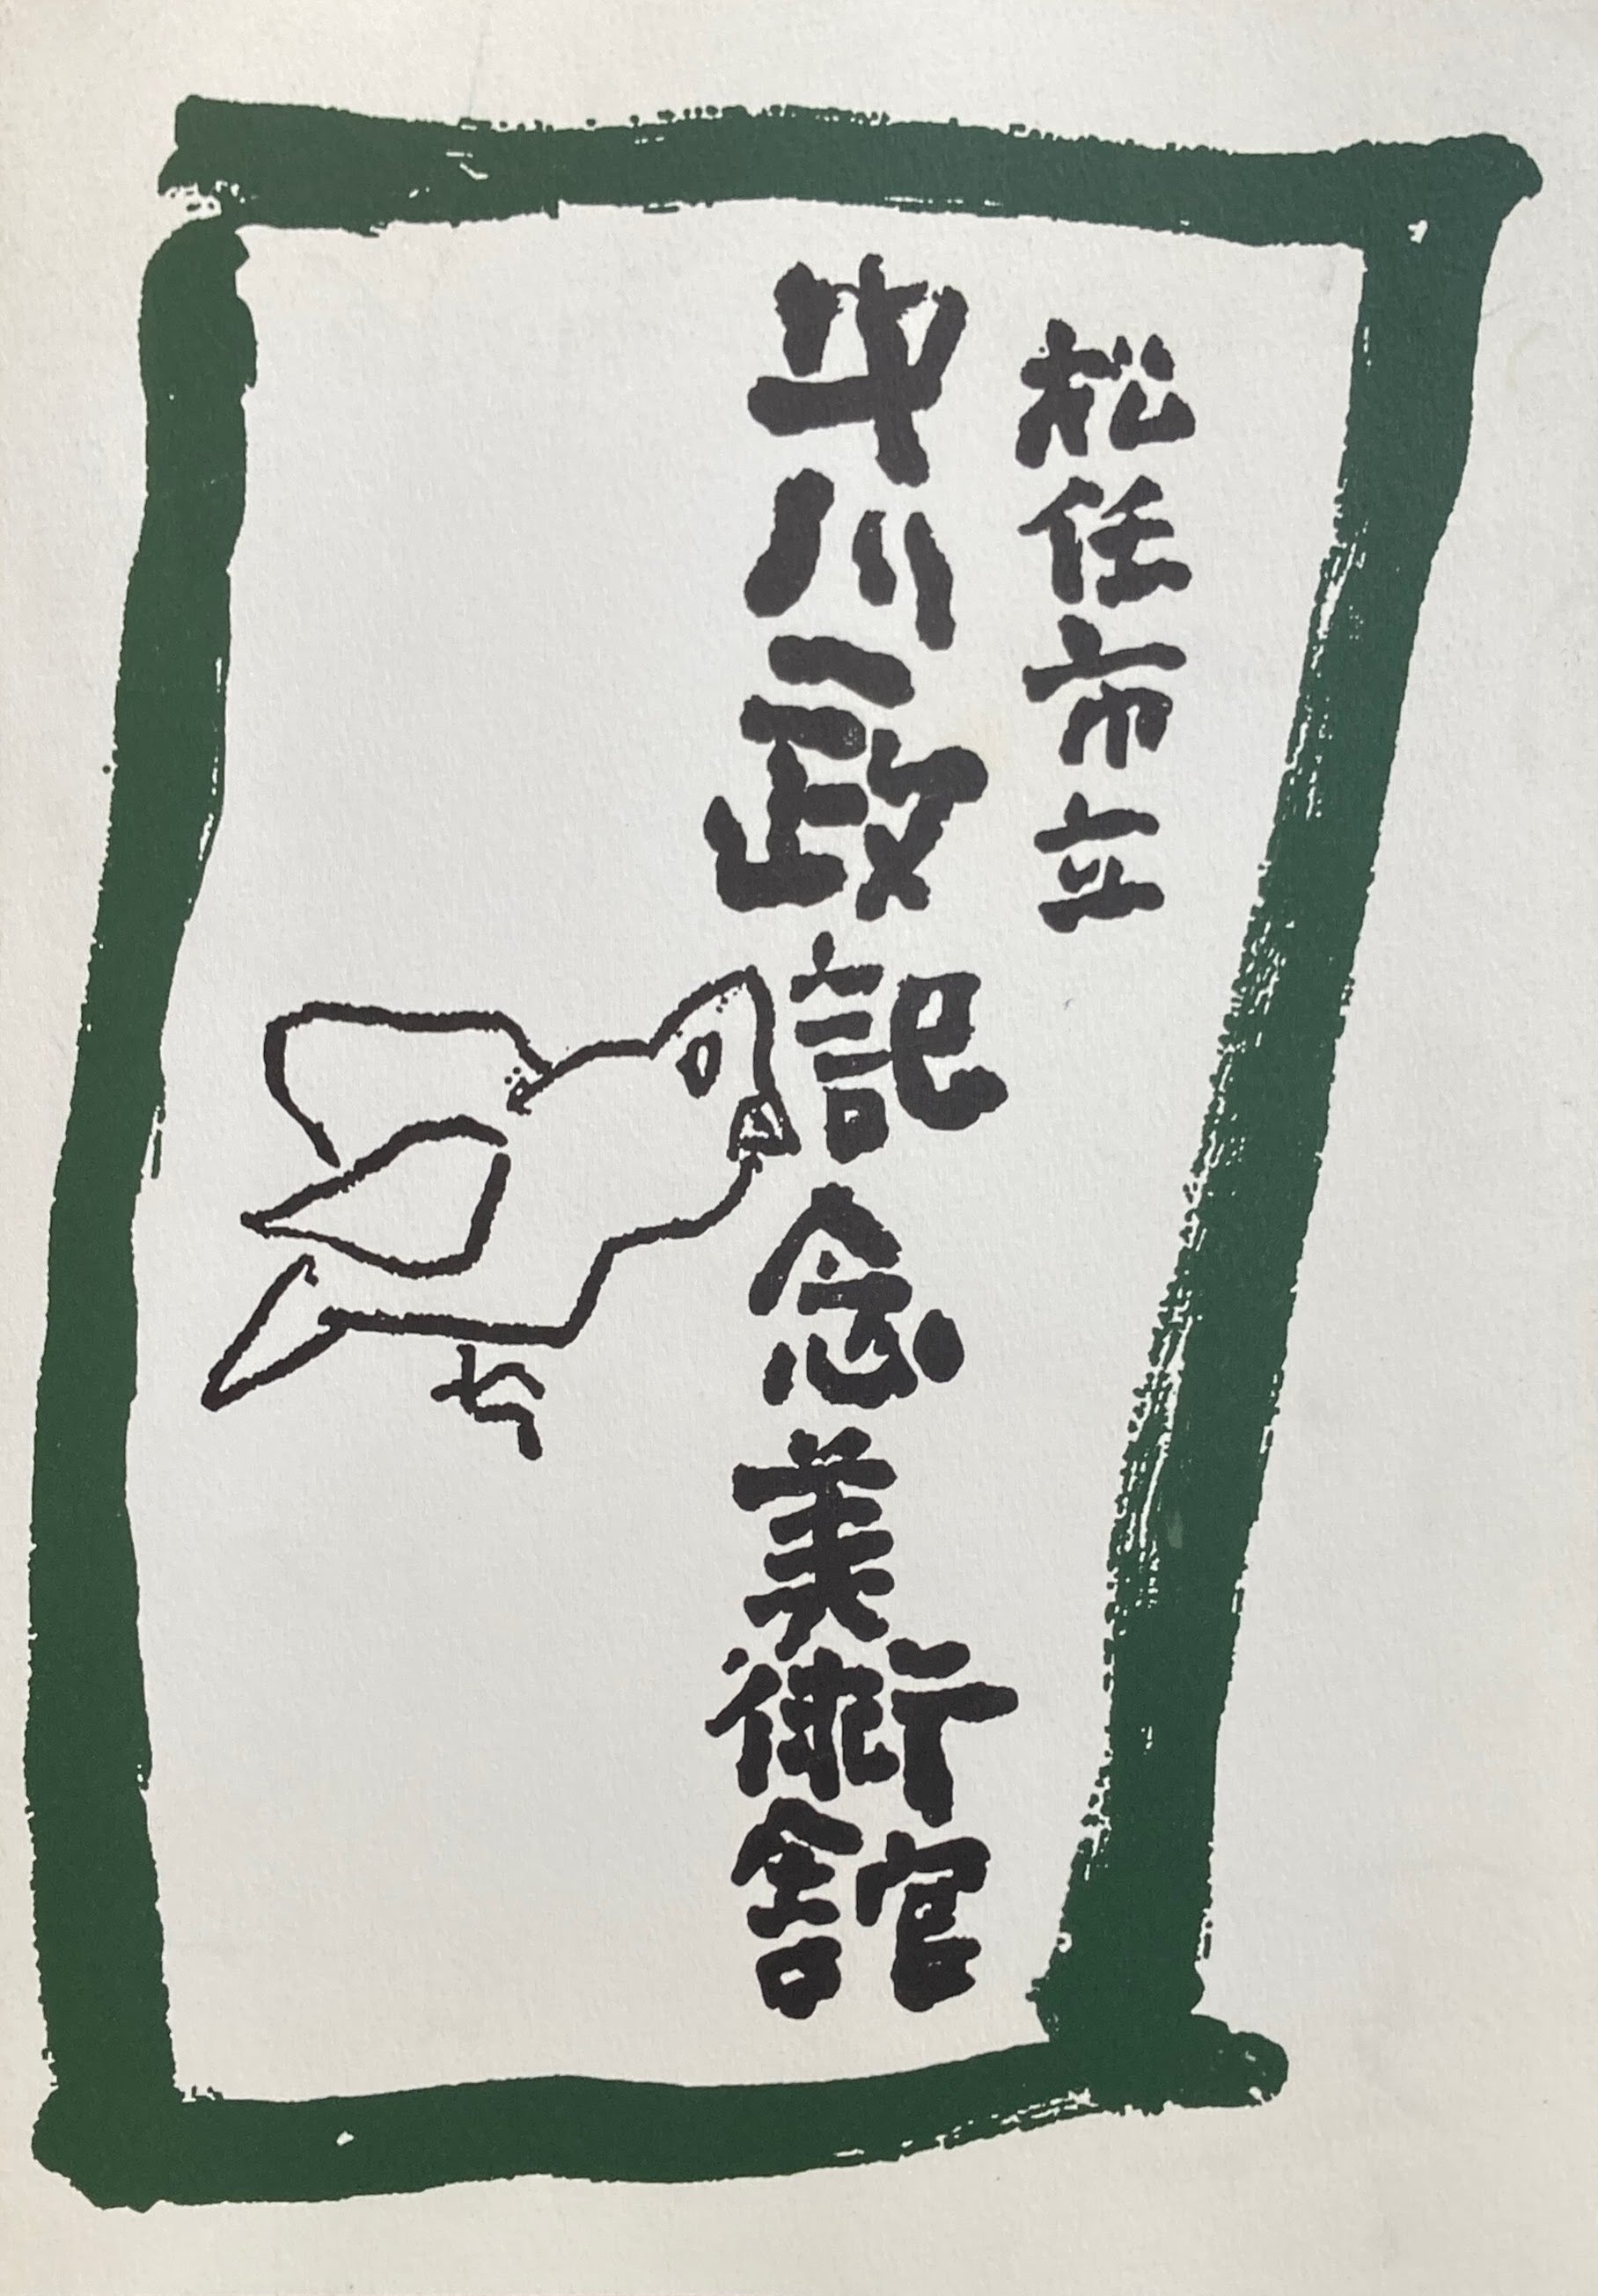 松任市立
中川一政記念美術館